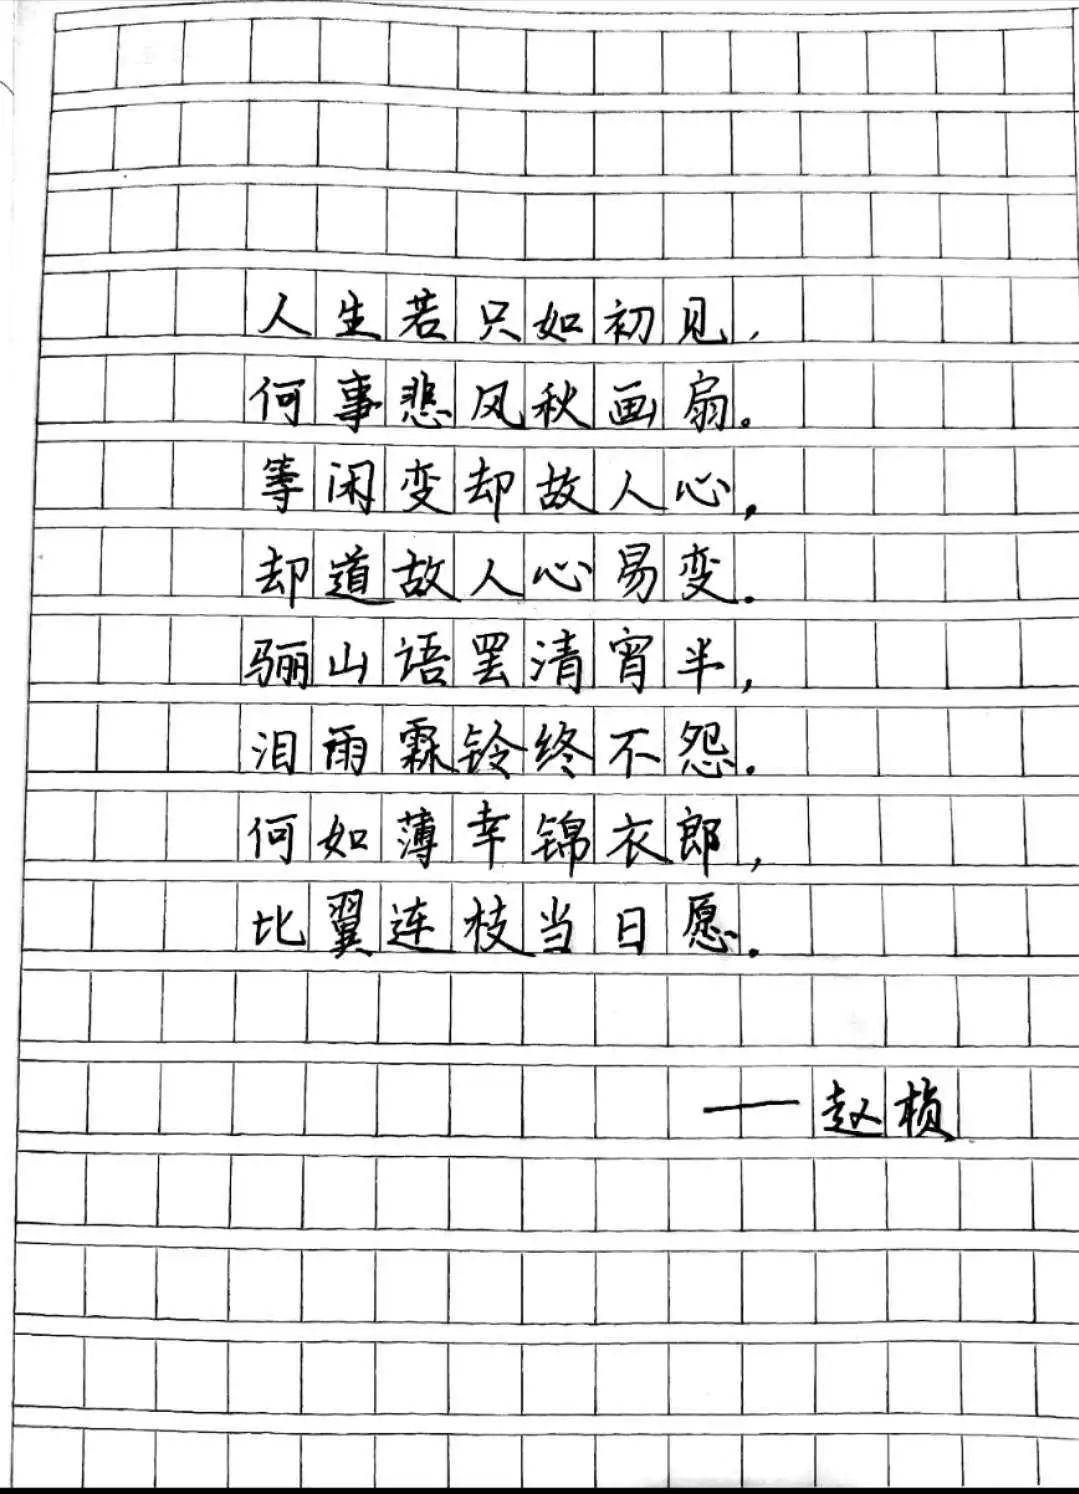 人生若只如初见，
何事悲风秋画扇。
等闲变却故人心，
却道故人心易变。
骊山语罢清宵半，
泪雨霖铃终不怨。
何如薄幸锦衣郎，
比翼连枝当日愿。
——赵桢